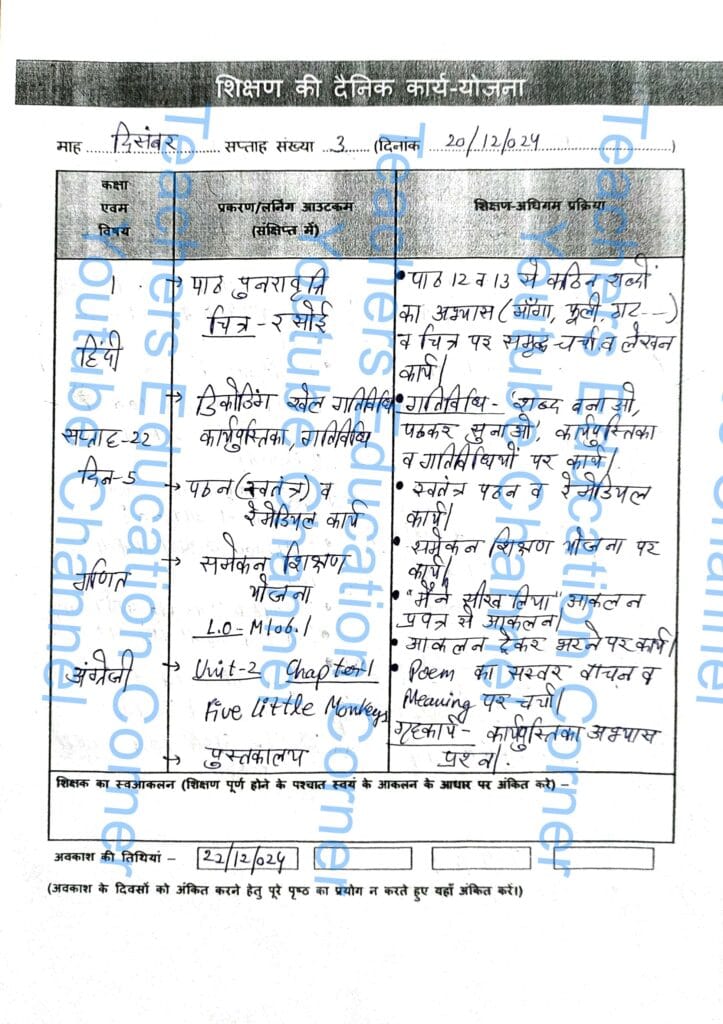 शिक्षण की दैनिक कार्य-योजना
माह दिसंबर सप्ताह संख्या 3 (दिनांक 20/12/024)
कक्षा
एवम
विषय
प्रकरण/लर्निंग आउटकम
(संक्षिप्त में)
शिक्षण-अधिगम प्रक्रिया
1
हिंदी
सप्ताह-22
दिन-5
→ पाठ पुनरावृति
चित्र - रसोई
→ डिकोडिंग खेल गतिविधि
कार्यपुस्तिका, गतिविधि
→ पठन (स्वतंत्र) व
रेमेडियल कार्य
• पाठ 12 व 13 से कठिन शब्दों
का अभ्यास (माँगा, फूली, गट---)
व चित्र पर समृद्ध चर्चा व लेखन
कार्य|
• गतिविधि - 'शब्द बनाओ,
पढकर सुनाओ', कार्यपुस्तिका
व गतिविधियों पर कार्य|
• स्वतंत्र पठन व रेमेडियल
कार्य|
गणित
→ समेकन शिक्षण
योजना
L.O - M106.1
• समेकन शिक्षण योजना पर
कार्य|
• "मैने सीख लिया" आकलन
प्रपत्र से आकलन|
• आकलन ट्रेकर भरने पर कार्य|
अंग्रेजी
→ Unit-2 Chapter-1
Five Little Monkeys
→ पुस्तकालय
• Poem का सस्वर वाचन व
Meaning पर चर्चा|
गृहकार्य - कार्यपुस्तिका अभ्यास
प्रश्न|
शिक्षक का स्वआकलन (शिक्षण पूर्ण होने के पश्चात स्वयं के आकलन के आधार पर अंकित करें) –
अवकाश की तिथियां – 22/12/024
(अवकाश के दिवसों को अंकित करने हेतु पूरे पृष्ठ का प्रयोग न करते हुए यहाँ अंकित करें।)
Teachers Education Corner
Youtube Channel
Teachers Education Corner
Youtube Channel
Teachers Education Corner
Youtube Channel